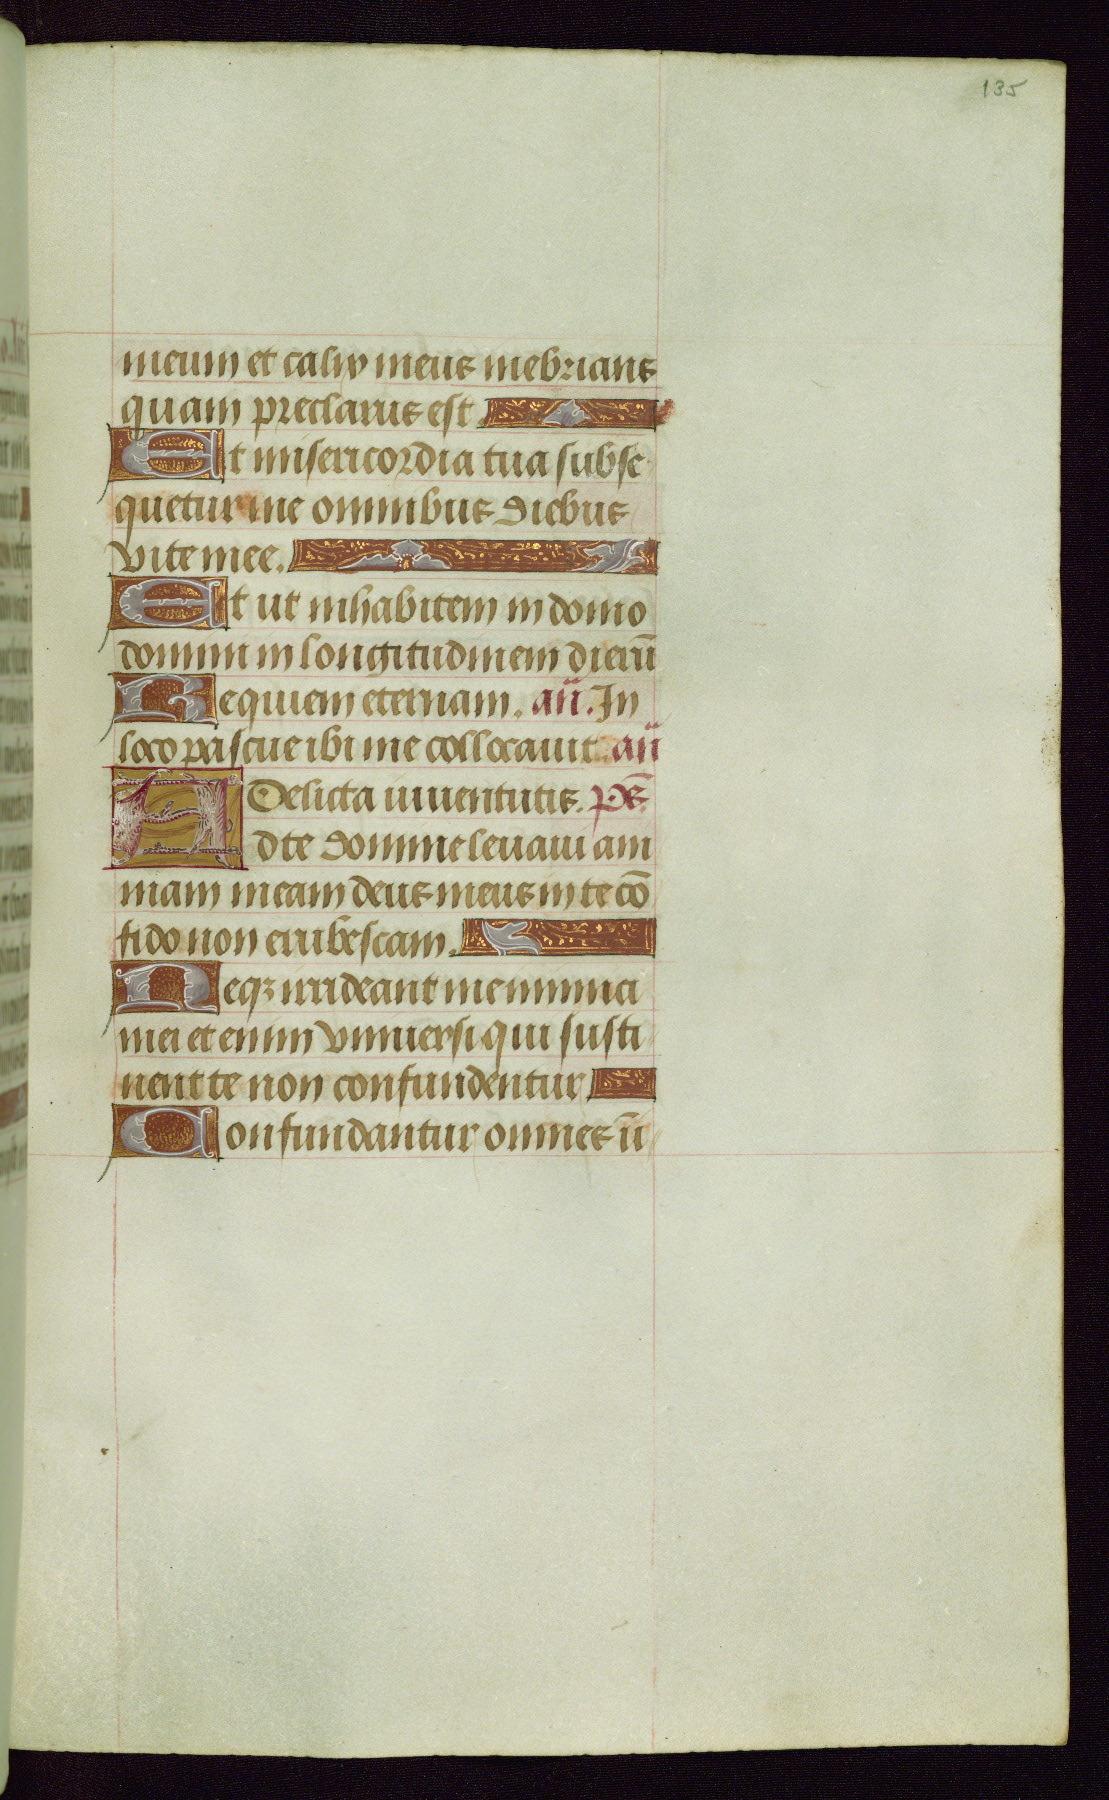 135
meum et calix meus inebrians
quam preclarus est
Et misericordia tua subse
quetur me omnibus diebus
vite mee.
Et ut inhabitem in domo
domini in longitudinem dierū
Requiem eternam. añ. In
loco pascue ibi me collocavit. añ
Delicta iuuentutis. pš.
Ad te domine leuaui ani
mam meam deus meus in te cō
fido non erubescam.
Neqꝫ irrideant me inimici
mei et enim vniuersi qui susti
nent te non confundentur
Confundantur omnes ii